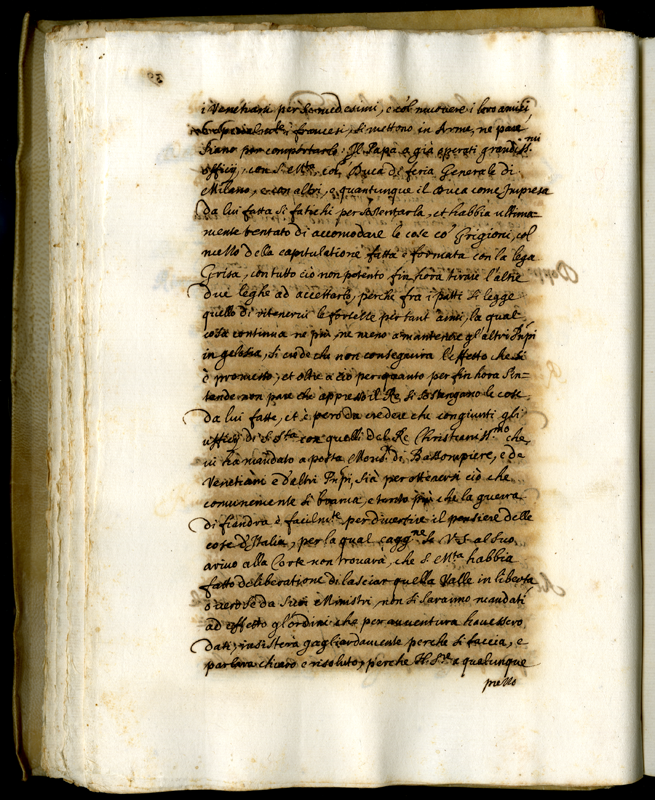 i Venetiani per se medesimi, e col muovere i loro amici
et specialmte i francesi, si mettono in Arme, ne pare
siano per comportarlo: Il Papa a già operati grandissmi
offitij, con S. Mta, col Duca di feria Generale di
Milano, e con altri, e quantunque il Duca come Impresa
da lui fatta si fatichi per sostentarla, et habbia ultima-
mente tentato di accomodare le cose co' Grigioni, col
mezzo della capitulatione fatta e formata con la lega
Grisa, con tutto ciò non potento fin hora tirare l'altre
due leghe ad accettarla, perche fra i patti si legge
quello di ritenervi le fortezze per tant' anni, la qual
cosa continua ne più, ne meno a mantenere gl'altri Pnpi
in gelosia, si crede che non conseguirà l'effetto che si
è promesso; et oltre a ciò per quanto per fin hora s'in-
tende non pare che appresso il Re si sostengano le cose
da lui fatte, et è però da credere che congiunti gli
uffitij di S. Sta con quelli del Re Christianissmo che
vi ha mandato a posta Monsr di Bassompiere, e de
Venetiani e d'altri Pnpi, sia per ottenersi ciò che
comunemente si brama, e tanto più che la guerra
di fiandra è facilmte per divertire il pensiere delle
cose d'Italia, per la qual caggne se V.S. al suo
arivo alla Corte non trovarà, che S. Mta habbia
fatto deliberatione di lasciar quella Valle in libertà
o vero se da suoi Ministri, non si saranno mandati
ad effetto gl'ordini che per avventura havessero
dati, insisterà gagliardamente perche si faccia, e
parlarà chiaro e risoluto, perche N. Sre a qualunque
prezzo